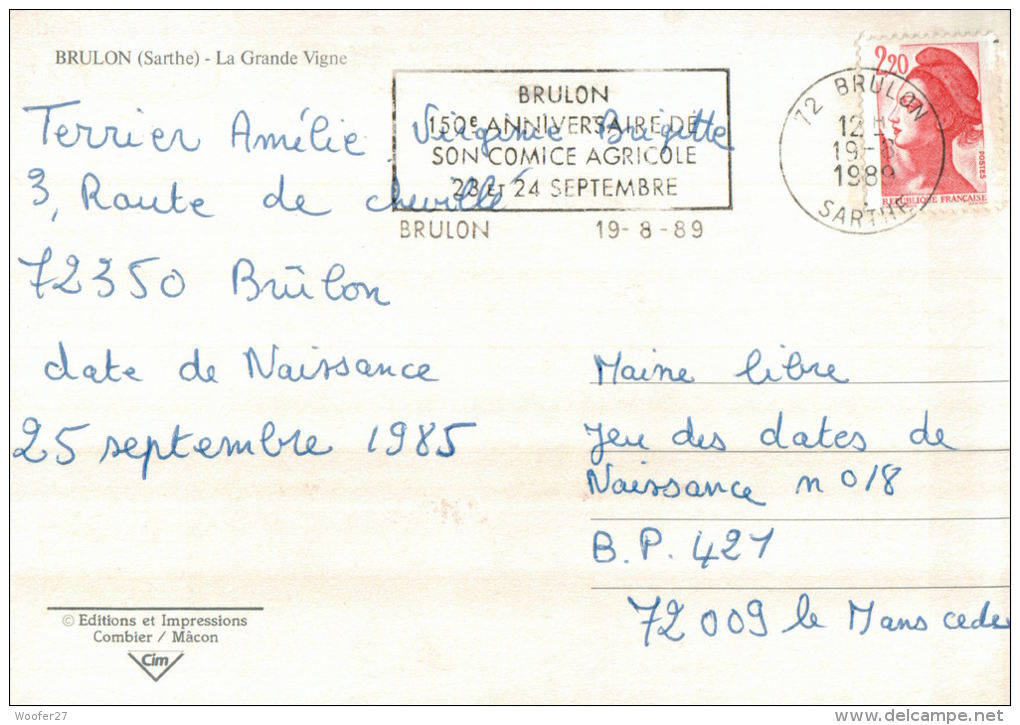 BRULON (Sarthe) - La Grande Vigne
2,20
POSTES
REPUBLIQUE FRANÇAISE
72 BRULON
12 H
19-8
1989
SARTHE
BRULON
150e ANNIVERSAIRE DE
SON COMICE AGRICOLE
23 ET 24 SEPTEMBRE
BRULON 19-8-89
Terrier Amélie Virginie Brigitte
3, Route de chevillé
72350 Brûlon
date de Naissance
25 septembre 1985
Maine libre
Jeu des dates de
Naissance n018
B.P. 421
72 009 le Mans cede
© Editions et Impressions
Combier / Mâcon
Cim
Woofer27
www.delcampe.net